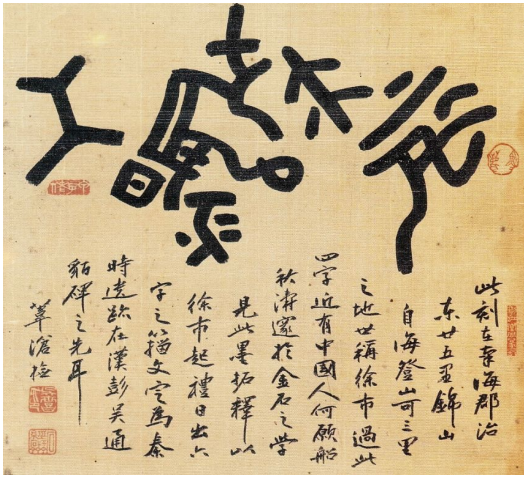 此刻在南海郡治
東廿五里錦山
自海登山可三里
之地世稱徐市過此
四字近有中國人何願船
秋濤邃於金石之學
見此墨拓釋以
徐市起禮日出六
字之籀文定為秦
時遺跡在漢彭吳通
貊碑之先耳
葦滄